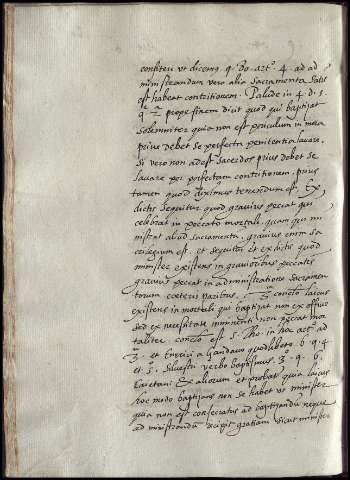 confiteri vt dicemus q. do. artº. 4. ad ad
ministrandum vero alia sacramenta satis
est habeat contritionem. Palude in 4. d. 5.
q. 2ª prope finem dicit quod qui baptizat
solemniter quia non est periculum in mora
prius debet se perfecta penitentia lauare.
si vero non adest sacerdos prius debet se
lauare per perfectam contritionem. prius
tamen quod diximus tenendum est. Ex
dictis sequitur quod grauius peccat qui
celebrat in peccato mortali quam qui mi
nistrat aliud sacramentū, grauius enim sa
crilegium est. et sequitur ex dictis quod
minister existens in grauioribus peccatis
grauius peccat in administratione sacramen
torum coeteris paribus. 2ª conclo. laicus
existens in mortali qui baptizat non ex officio
sed ex necessitate imminenti non peccat mor
taliter. conclo. est S. Tho. in hoc artº. ad
3ᵐ. et Enrici a Gandauo quodlibeto 6. q. 4
et S. Siluestri verbo baptismus 3º. q. 6.
Caietani et aliorum et probatᵘʳ quia laicus
hoc modo baptizans non se habet vt minister
quia non est consecratus ad baptizandū neque
ad ministrandum recipit gratiam sicut minister